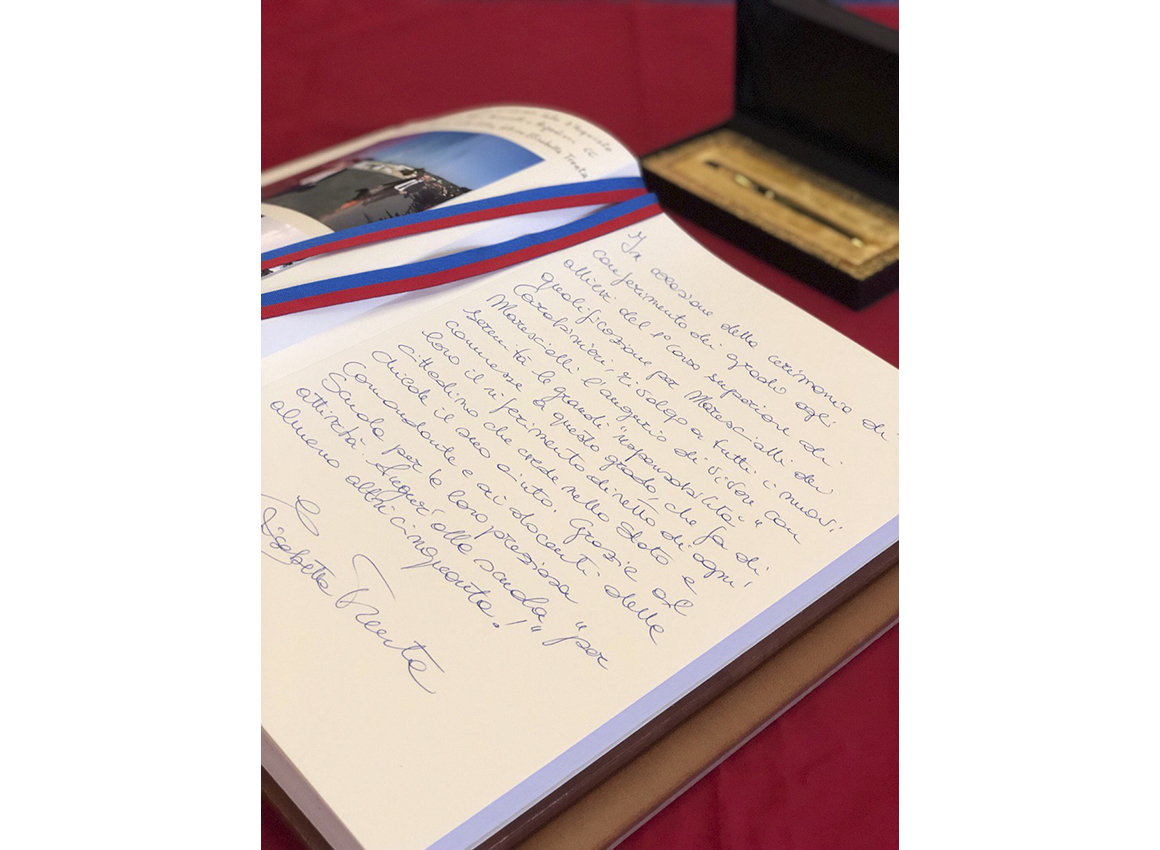 Elisabetta Trenta
In occasione della cerimonia di
conferimento dei gradi agli
allievi del 1° corso superiore di
qualificazione per Marescialli dei
Carabinieri, rivolgo a tutti i nuovi
Marescialli l'augurio di vivere con
serenità le grandi "responsabilità"
connesse a questo grado che fa di
loro il riferimento diretto di ogni
cittadino che crede nello Stato e
chiede il suo aiuto. Grazie al
Comandante e ai docenti della
Scuola per la loro preziosa
attività. Auguri alla scuola "per
almeno altri cinquanta!"
Elisabetta Trenta